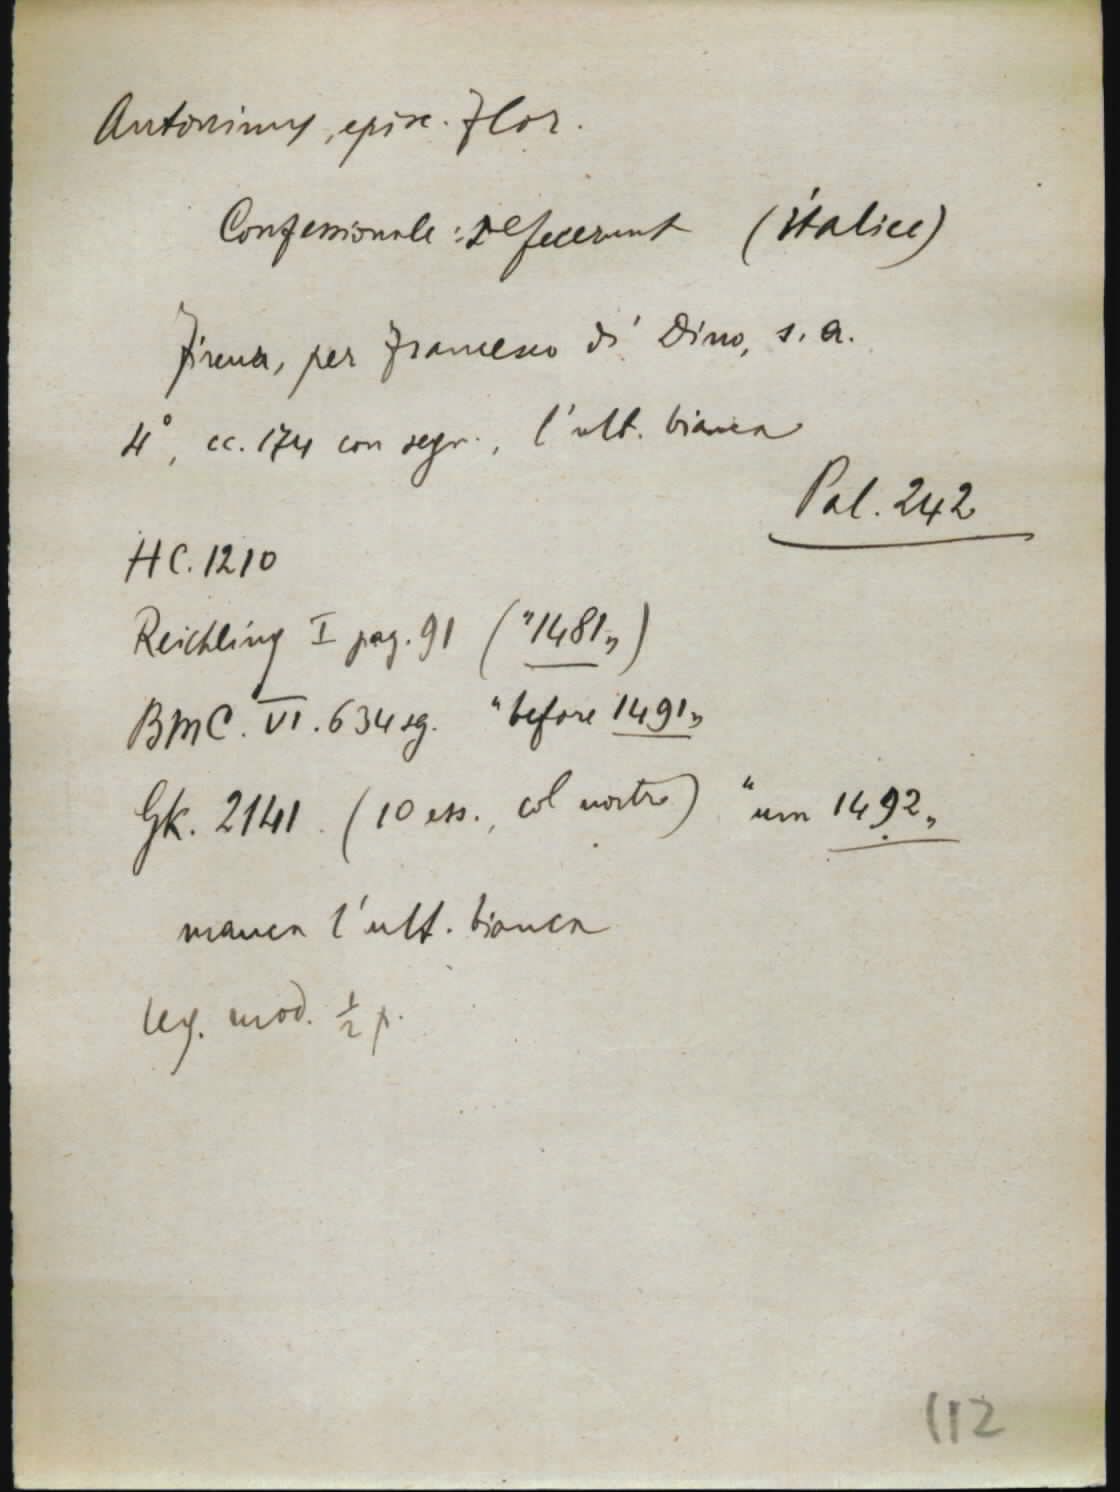 Antoninus, episc. Flor.
Confessionale: Defecerunt (italice)
Firenza, per Francesco di Dino, s. a.
4°, cc. 174 con segn., l'ult. bianca
Pal. 242
HC. 1210
Reichling I pag. 91 ("1481")
BMC. VI. 634 sg. "before 1491"
GK. 2141 (10 ess., col nostro) "um 1492"
manca l'ult. bianca
leg. mod. ½ p.
112